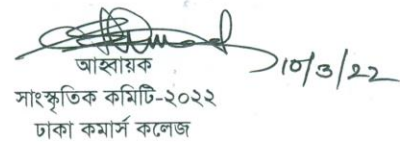 10/3/22
আহ্বায়ক
সাংস্কৃতিক কমিটি-২০২২
ঢাকা কমার্স কলেজ